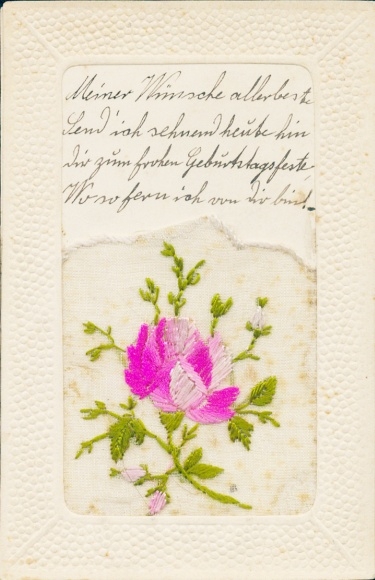 Meiner Wünsche allerbeste
Send' ich sehnend heute hin
Dir zum frohen Geburtstagsfeste,
Wo so fern ich von dir bin!